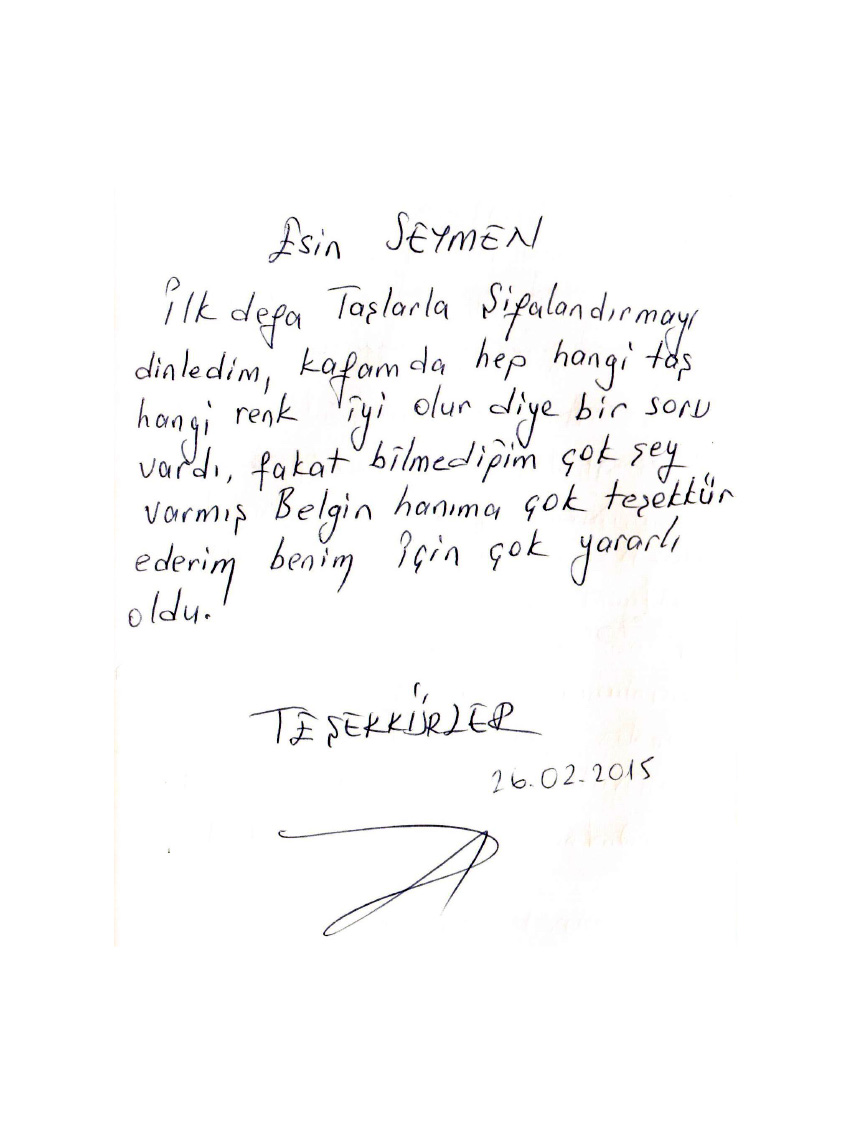 Esin SEYMEN
İlk defa Taşlarla Şifalandırmayı
dinledim, kafamda hep hangi taş
hangi renk iyi olur diye bir soru
vardı, fakat bilmediğim çok şey
varmış Belgin hanıma çok teşekkür
ederim benim için çok yararlı
oldu.
TEŞEKKÜRLER
26.02.2015